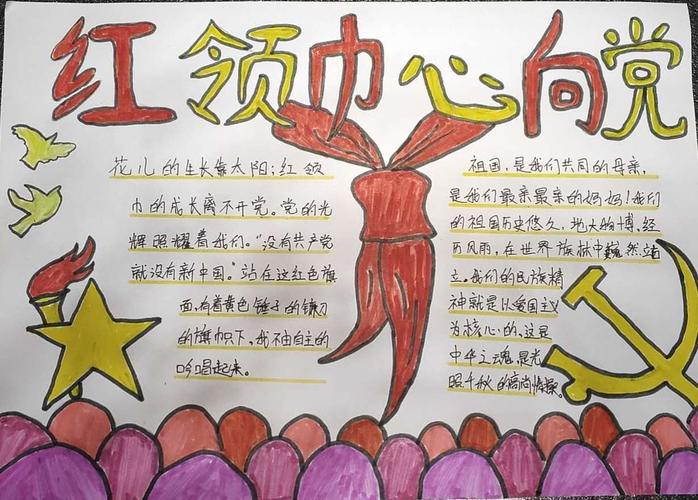 红领巾心向党
花儿的生长靠太阳；红领
巾的成长离不开党。党的光
辉照耀着我们。“没有共产党
就没有新中国。”站在这红色旗
面，有着黄色锤子的镰刀
的旗帜下，我不由自主的
吟唱起来。
祖国，是我们共同的母亲，
是我们最亲最亲的妈妈！我们
的祖国历史悠久，地大物博，经
历风雨，在世界族林中巍然站
立。我们的民族精
神就是以爱国主义
为核心的，这是
中华之魂，是光
照千秋的高尚情操。